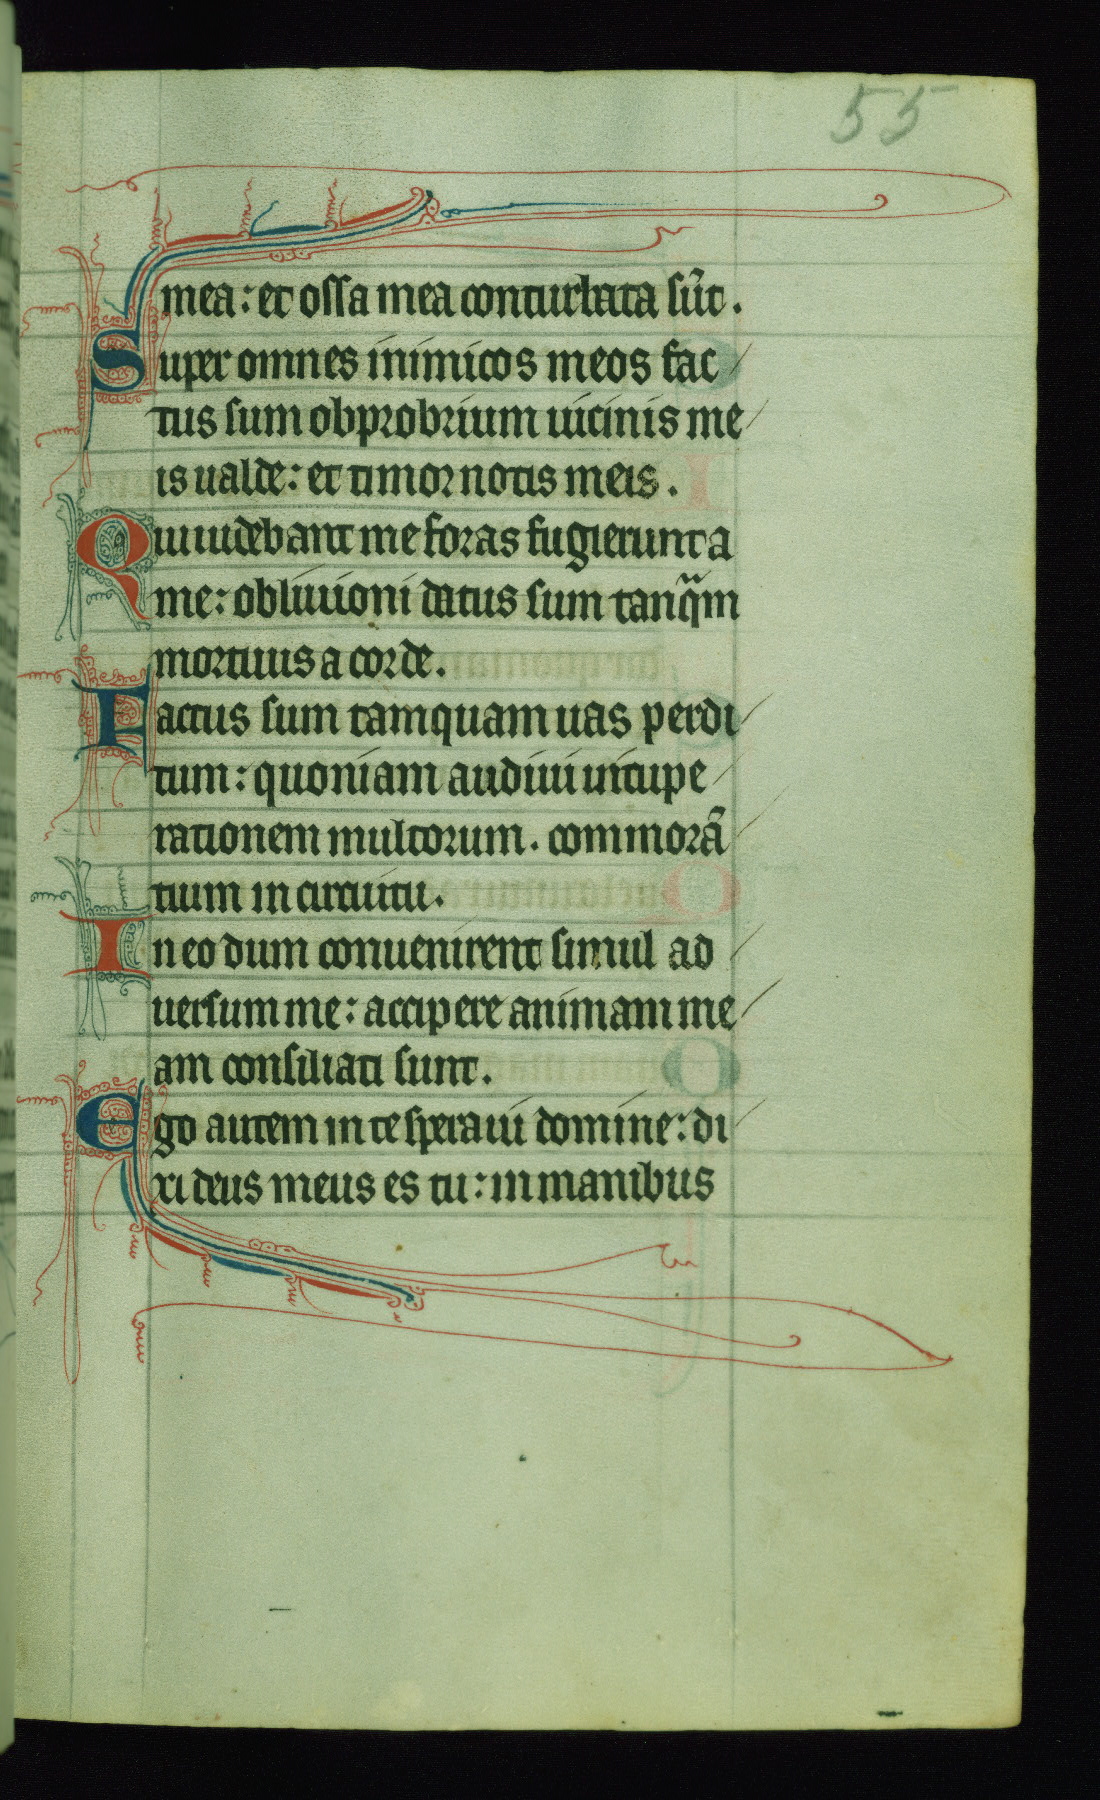 55
mea: et ossa mea conturbata sūt.
Super omnes inimicos meos fac
tus sum obprobrium uicinis me
is ualde: et timor notis meis.
Qui uidebant me foras fugierunt a
me: obliuioni datus sum tanq̄m
mortuus a corde.
Factus sum tamquam uas perdi
tum: quoniam audiui uitupe
rationem multorum. commorā
tium in circuitu.
In eo dum conuenirent simul ad
uersum me: accipere animam me
am consiliati sunt.
Ego autem in te speraui domine: di
xi deus meus es tu: in manibus